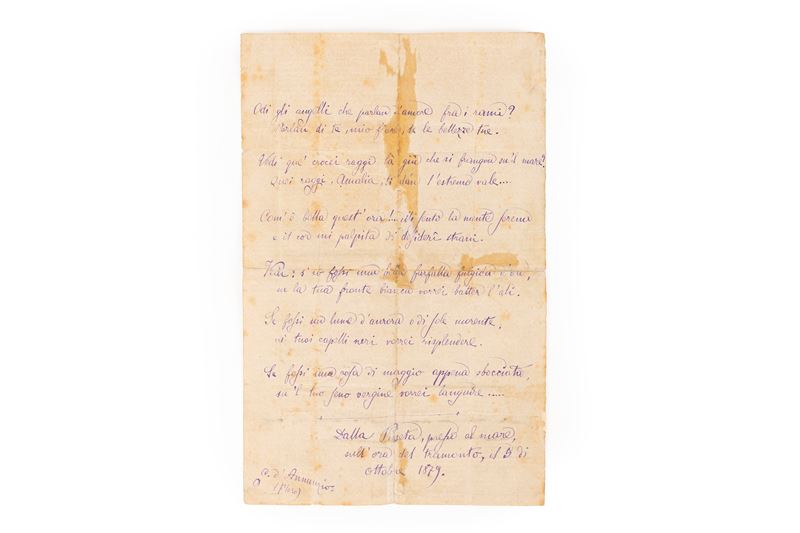 Odi gli augelli che parlan d'amore fra i rami?
Parlan di te, mio fiore, de le bellezze tue.
Vedi que' crocei raggi là giù che si frangon su 'l mare?
Quei raggi, Amalia, ti dan l'estremo vale....
Com' è bella quest' ora!... Mi sento la mente serena
e il cor mi palpita di desiderî strani.
se io fossi una bella farfalla fulgida
su la tua fronte bianca vorrei batter l'ali.
Se fossi un lume d'aurora o di sole morente,
ne' tuoi capelli neri vorrei risplendere.
Se fossi una rosa di maggio appena sbocciata,
su 'l tuo seno vergine vorrei languire.....
Dalla Pineta, presso al mare,
nell' ora del tramonto, il 5 di
ottobre 1879.
G. d'Annunzio